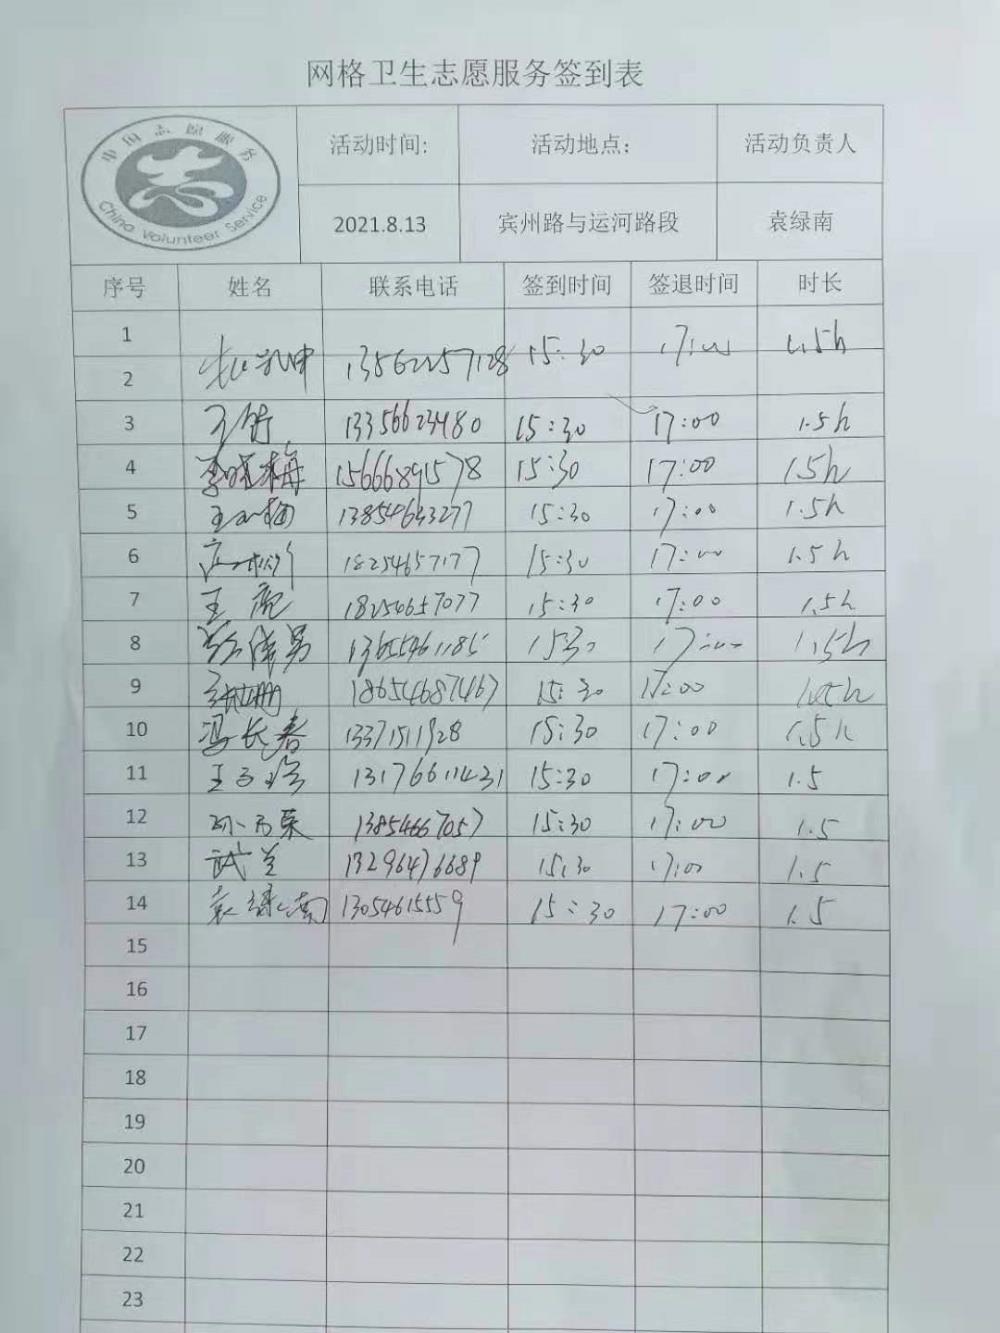 网格卫生志愿服务签到表
中国志愿服务
China Volunteer Service
活动时间: 活动地点： 活动负责人
2021.8.13 宾州路与运河路段 袁绿南
序号 姓名 联系电话 签到时间 签退时间 时长
1 15:30 17:00 1.5h
2
3 13356623480 15:30 17:00 1.5h
4 李晓梅 15666891578 15:30 17:00 1.5h
5 13854643277 15:30 17:00 1.5h
6 18254657177 15:30 17:00 1.5h
7 王亮 18254657077 15:30 17:00 1.5h
8 13655461185 15:30 17:00 1.5h
9 18654687467 15:30 17:00 1.5h
10 冯长春 13371511928 15:30 17:00 1.5h
11 13176611431 15:30 17:00 1.5
12 13854667057 15:30 17:00 1.5
13 武兰 13296476689 15:30 17:00 1.5
14 袁绿南 13054615559 15:30 17:00 1.5
15
16
17
18
19
20
21
22
23